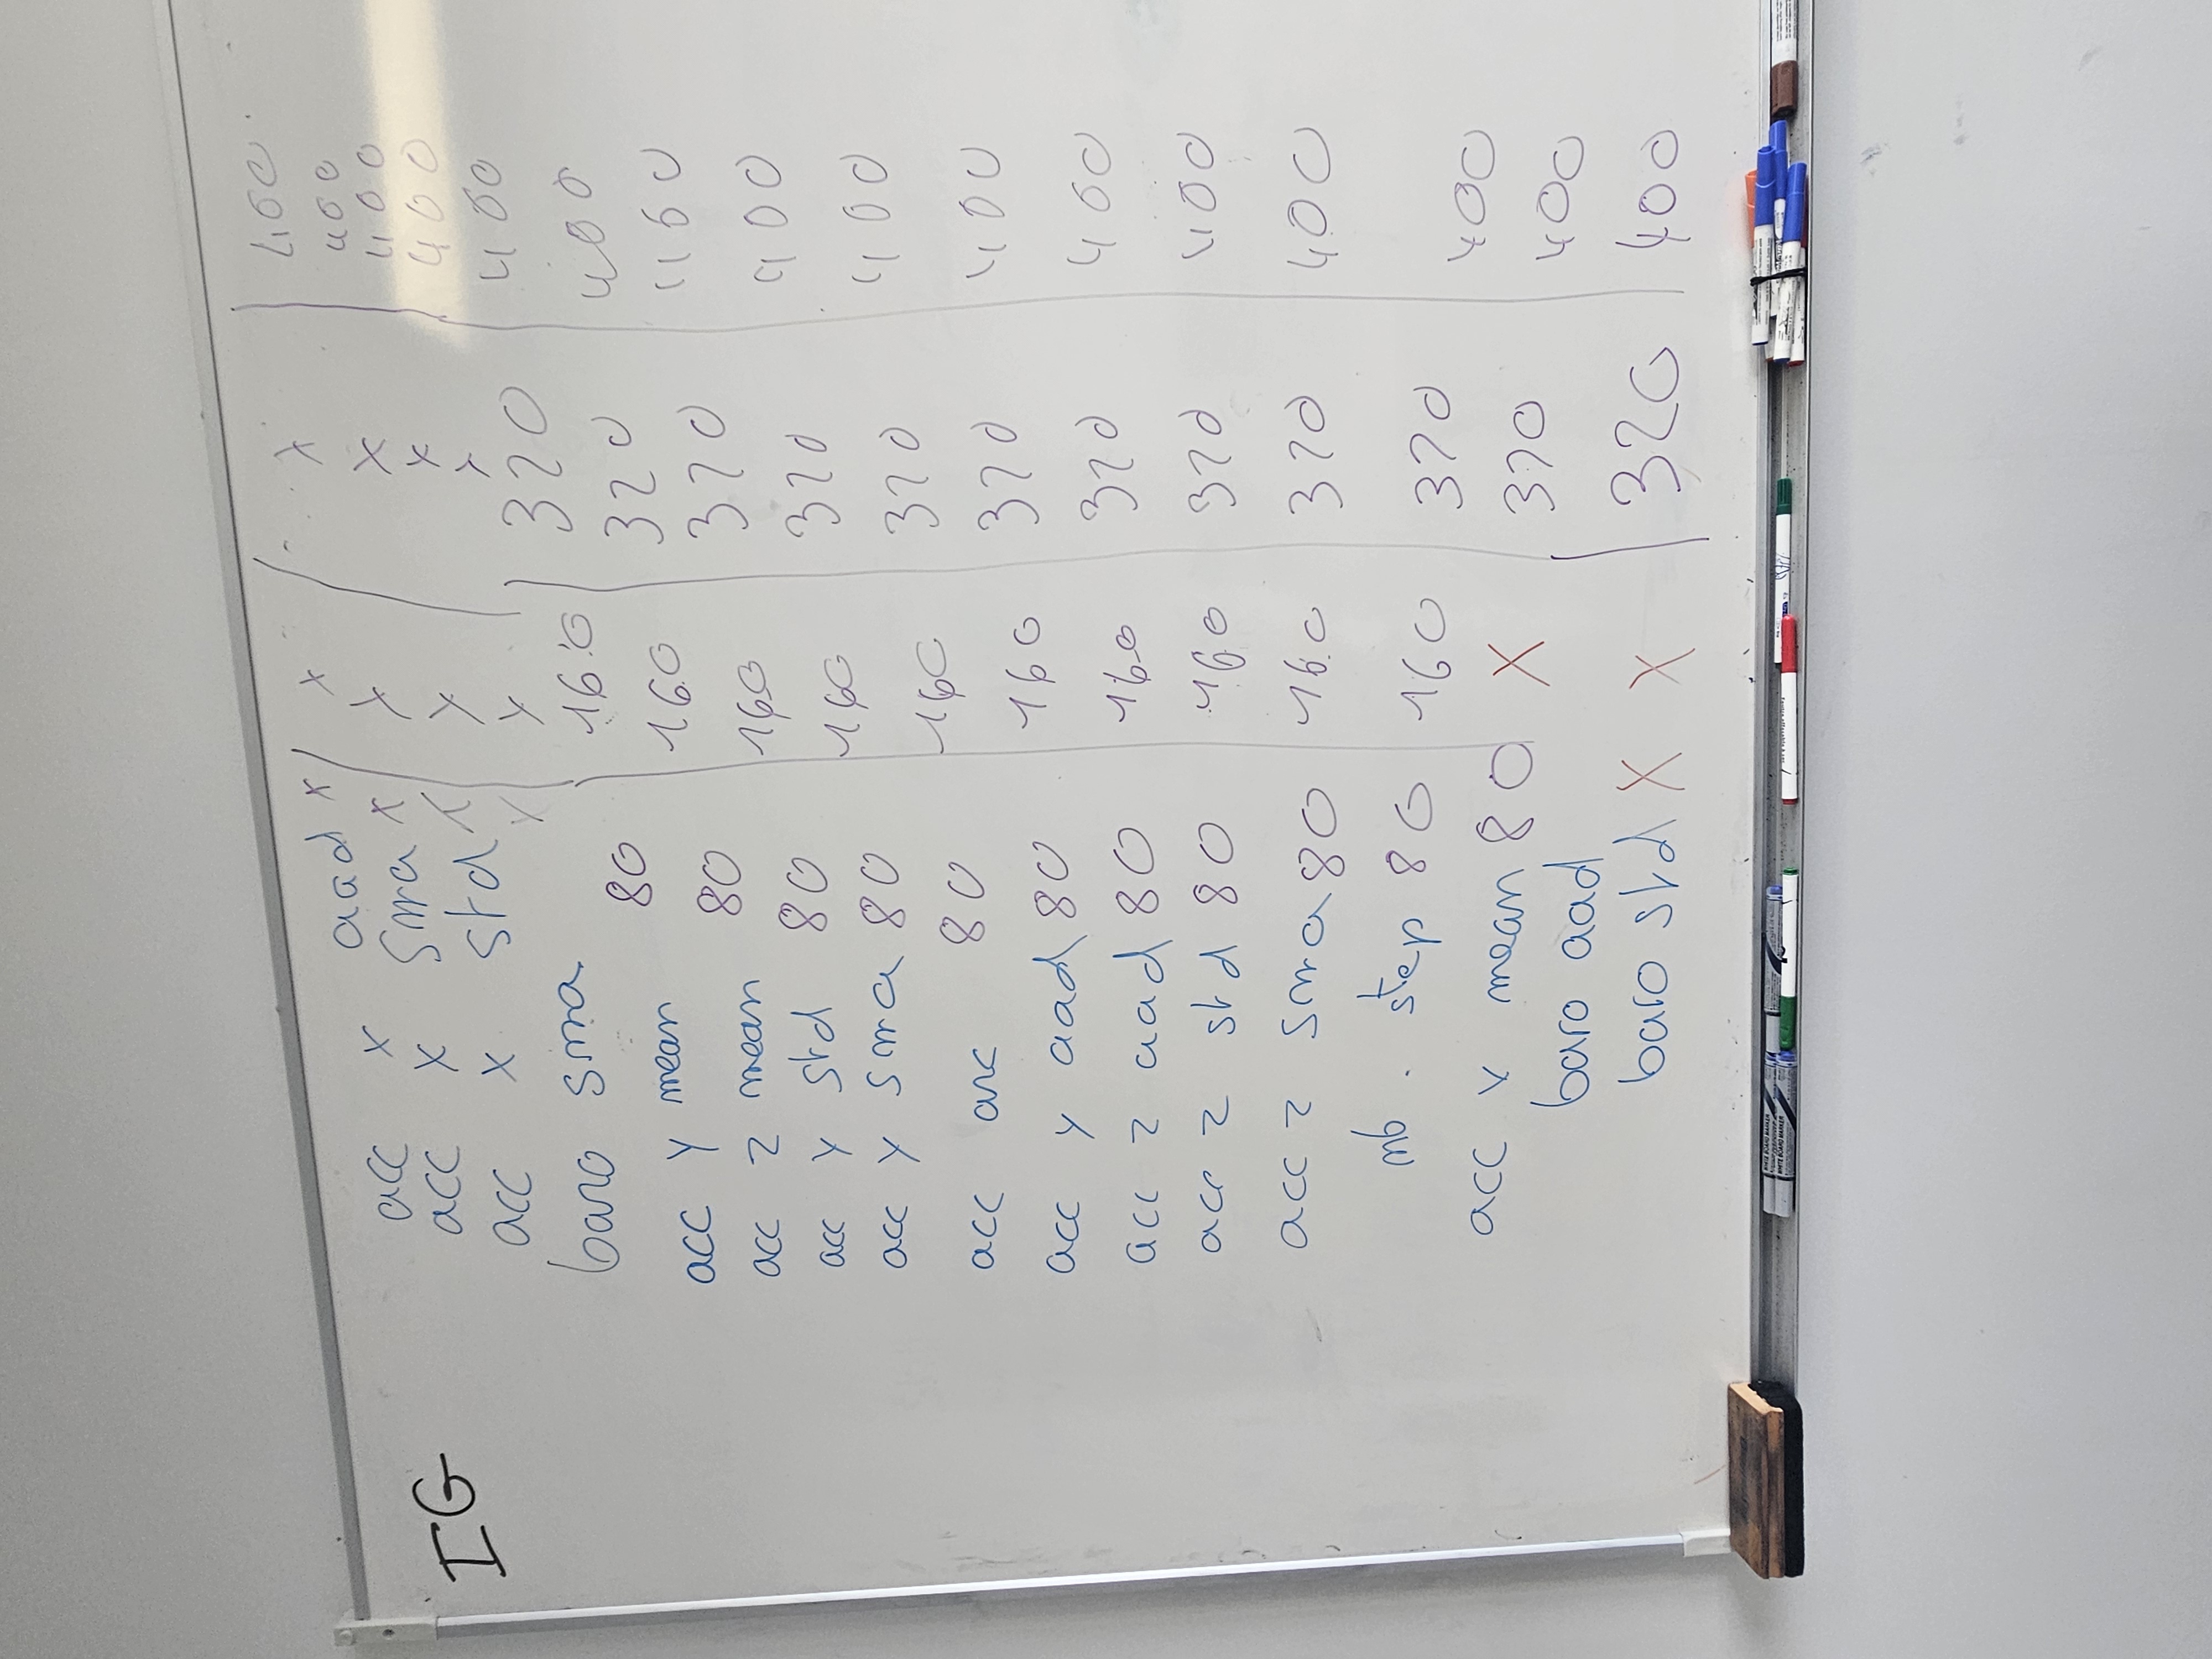 IG
acc x aad x | x | x | 400
acc x sma x | x | x | 400
acc x std x | x | x | 400
baro sma x | x | x | 400
acc y mean 80 | 160 | 320 | 400
acc z mean 80 | 160 | 320 | 400
acc y std 80 | 160 | 320 | 400
acc y sma 80 | 160 | 320 | 400
acc arc 80 | 160 | 320 | 400
acc y aad 80 | 160 | 320 | 400
acc z aad 80 | 160 | 320 | 400
acc z std 80 | 160 | 320 | 400
acc z sma 80 | 160 | 320 | 400
nb . step 80 | 160 | 320 | 400
acc x mean 80 X | 320 | 400
baro aad
baro std X X | 320 | 400
WHITE BOARD MARKER
WHITE BOARD MARKER